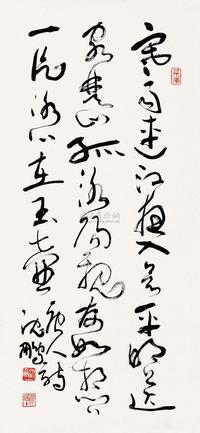 寒雨连江夜入吴平明送
客楚山孤洛阳亲友如相问
一片冰心在玉壶
唐人诗
沈鹏